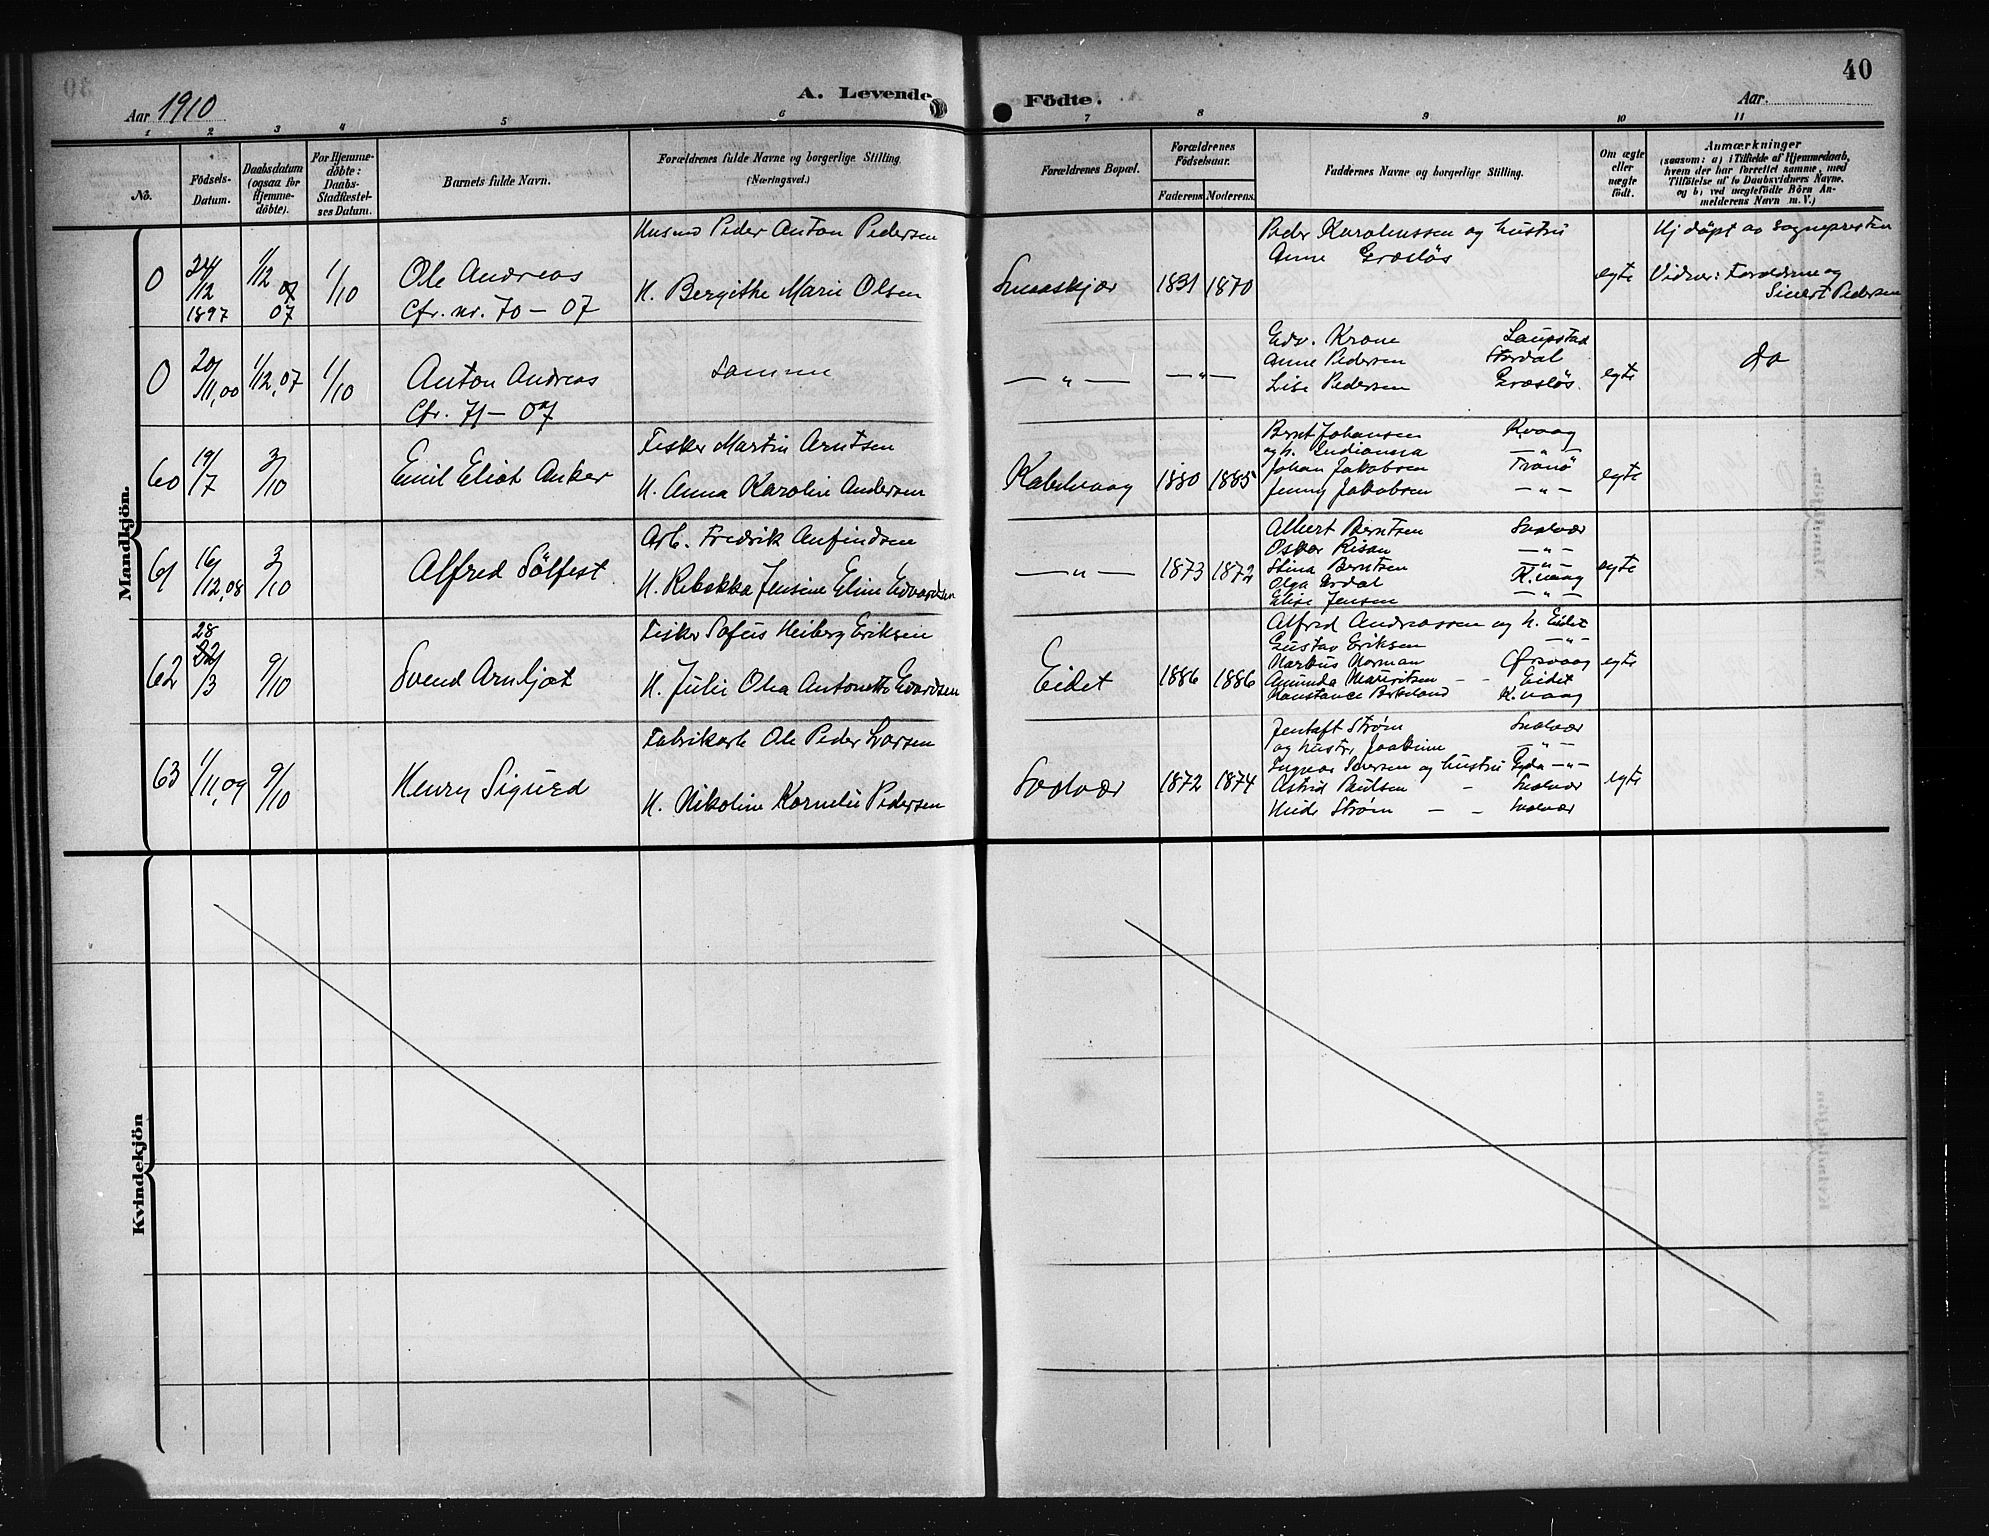 40
Aar 1910
A. Levende
Födte.
Aar
1 2 3 4 5 6 7 8 9 10 11
No.
Födsels-Datum.
Daabsdatum (ogsaa for Hjemmedöbte).
For Hjemmedöbte: Daabs-Stadfæstelses Datum.
Barnets fulde Navn.
Forældrenes fulde Navne og borgerlige Stilling. (Næringsvei.)
Forældrenes Bopæl.
Forældrenes Födselsaar.
Faderens Moderens
Faddernes Navne og borgerlige Stilling.
Om ægte eller uægte födt.
Anmærkninger
(saasom: a) i Tilfælde af Hjemmedaab, hvem der har forrettet samme, med Tilföielse af to Daabsvidners Navne, og b) ved uægtefödte Börn Anmelderens Navn m. V.)
Mandkjön.
0 24/12 1897 1/12 07 1/10
Ole Andreas
Cfr. nr. 70 – 07
Husmd Peder Anton Pedersen
H. Bergithe Marie Olsen
Smaaskjær 1831 1870
Peder Karoliussen og hustru
Anne Græsløs
egte
Hj døpt av sognepresten
Vidner: Forældrene og
Sivert Pedersen
0 20/11,00 1/12,07 1/10
Anton Andreas
Cfr. 71 – 07
Samme
— „ — — „ —
Edv. Krane Laupstad
Anne Pedersen Stordal
Lise Pedersen Græsløs.
egte
do
60 19/7 3/10
Emil Eliot Anker
Fisker Martin Arntsen
H. Anna Karoline Andersen
Kabelvaag 1880 1885
Bernt Johansen K.vaag
og h. Indianna — „ —
Johan Jakobsen Tranø
Jenny Jakobsen — „ —
egte
61 16/12,08 3/10
Alfred Sölfest
Arb. Fredrik Anfindsen
H. Rebekka Jensine Eline Edvardsen
— „ — 1873 1872
Albert Berntsen Svolvær
Oskar Risan — „ —
Stina Berntsen — „ —
Olga Erdal K.vaag
Elise Jensen — „ —
egte
62 28/3 9/10
Svend Arnljot
Fisker Sofus Heiberg Eriksen
H. Julie Olea Antonette Edvardsen
Eidet 1886 1886
Alfred Andreassen og h. Eidet
Gustav Eriksen — „ —
Markus Norman Ørsvaag
Amunda Mauritsen - - Eidet
Konstance K.vaag
egte
63 1/11,09 9/10
Henry Sigurd
Fabrikarb Ole Peder Larsen
H. Nikoline Kornelie Pedersen
Svolvær 1872 1874
Jentoft Strøm Svolvær
og hustr. Joakime — „ —
og hustru Gyda — „ —
Astrid Paulsen - Svolvær
Strøm — - Svolvær
egte
Kvindekjön